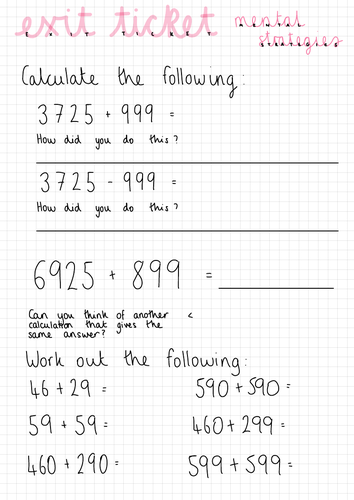 exit ticket mental
EXIT TICKET MENTAL
strategies
STRATEGIES
Calculate the following:
3725 + 999 =
How did you do this?
3725 - 999 =
How did you do this?
6925 + 899 =
Can you think of another
calculation that gives the
same answer?
Work out the following:
46 + 29 = 590 + 590 =
59 + 59 = 460 + 299 =
460 + 290 = 599 + 599 =